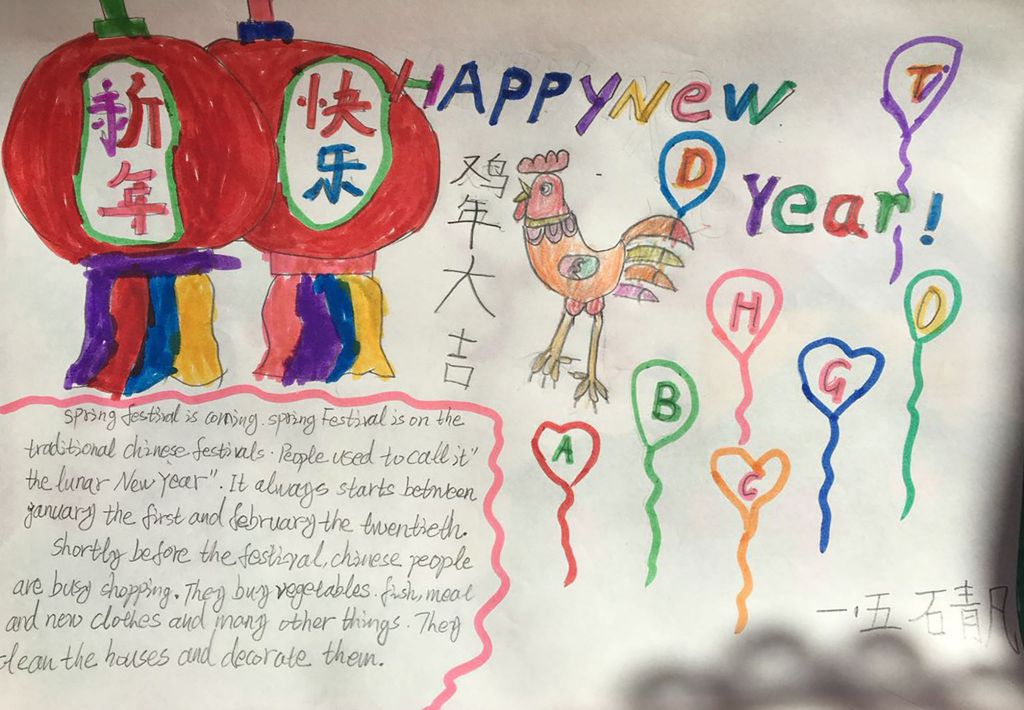 新年
快乐
HAPPY New
Year!
鸡年大吉
T
D
H
O
G
B
A
C
spring festival is coming. spring Festival is on the
traditional chinese festivals. People used to call it "
the lunar New Year". It always starts between
january the first and february the twentieth.
shortly before the festival, chinese people
are busy shopping. They buy vegetables. fish, meat
and new clothes and many other things. They
clean the houses and decorate them.
一.五 石青凡